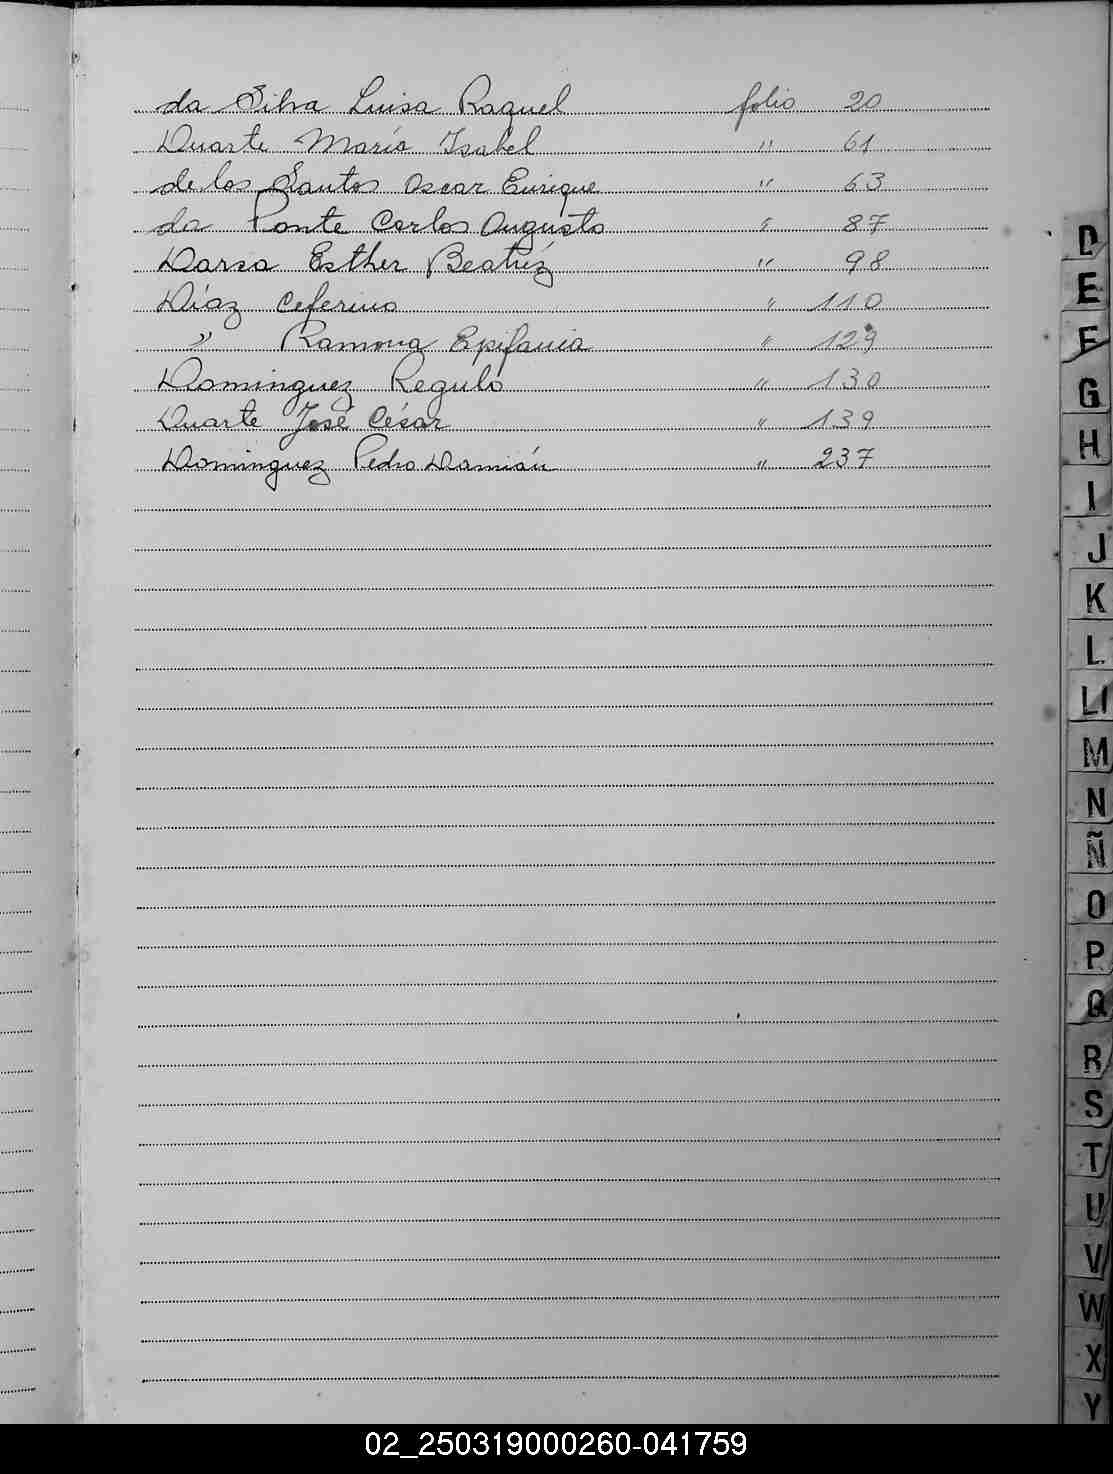 da Silva Luisa Raquel folio 20
Duarte María Isabel " 61
de los Santos Oscar Enrique " 63
da Ponte Carlos Augusto " 87
Darsa Esther Beatríz " 98
Díaz Ceferino " 110
" Ramona Epifania " 129
Dominguez Regulo " 130
Duarte José César " 139
Dominguez Pedro Damián " 237
D
E
F
G
H
I
J
K
L
Ll
M
N
Ñ
O
P
Q
R
S
T
U
V
W
X
Y
02_250319000260-041759